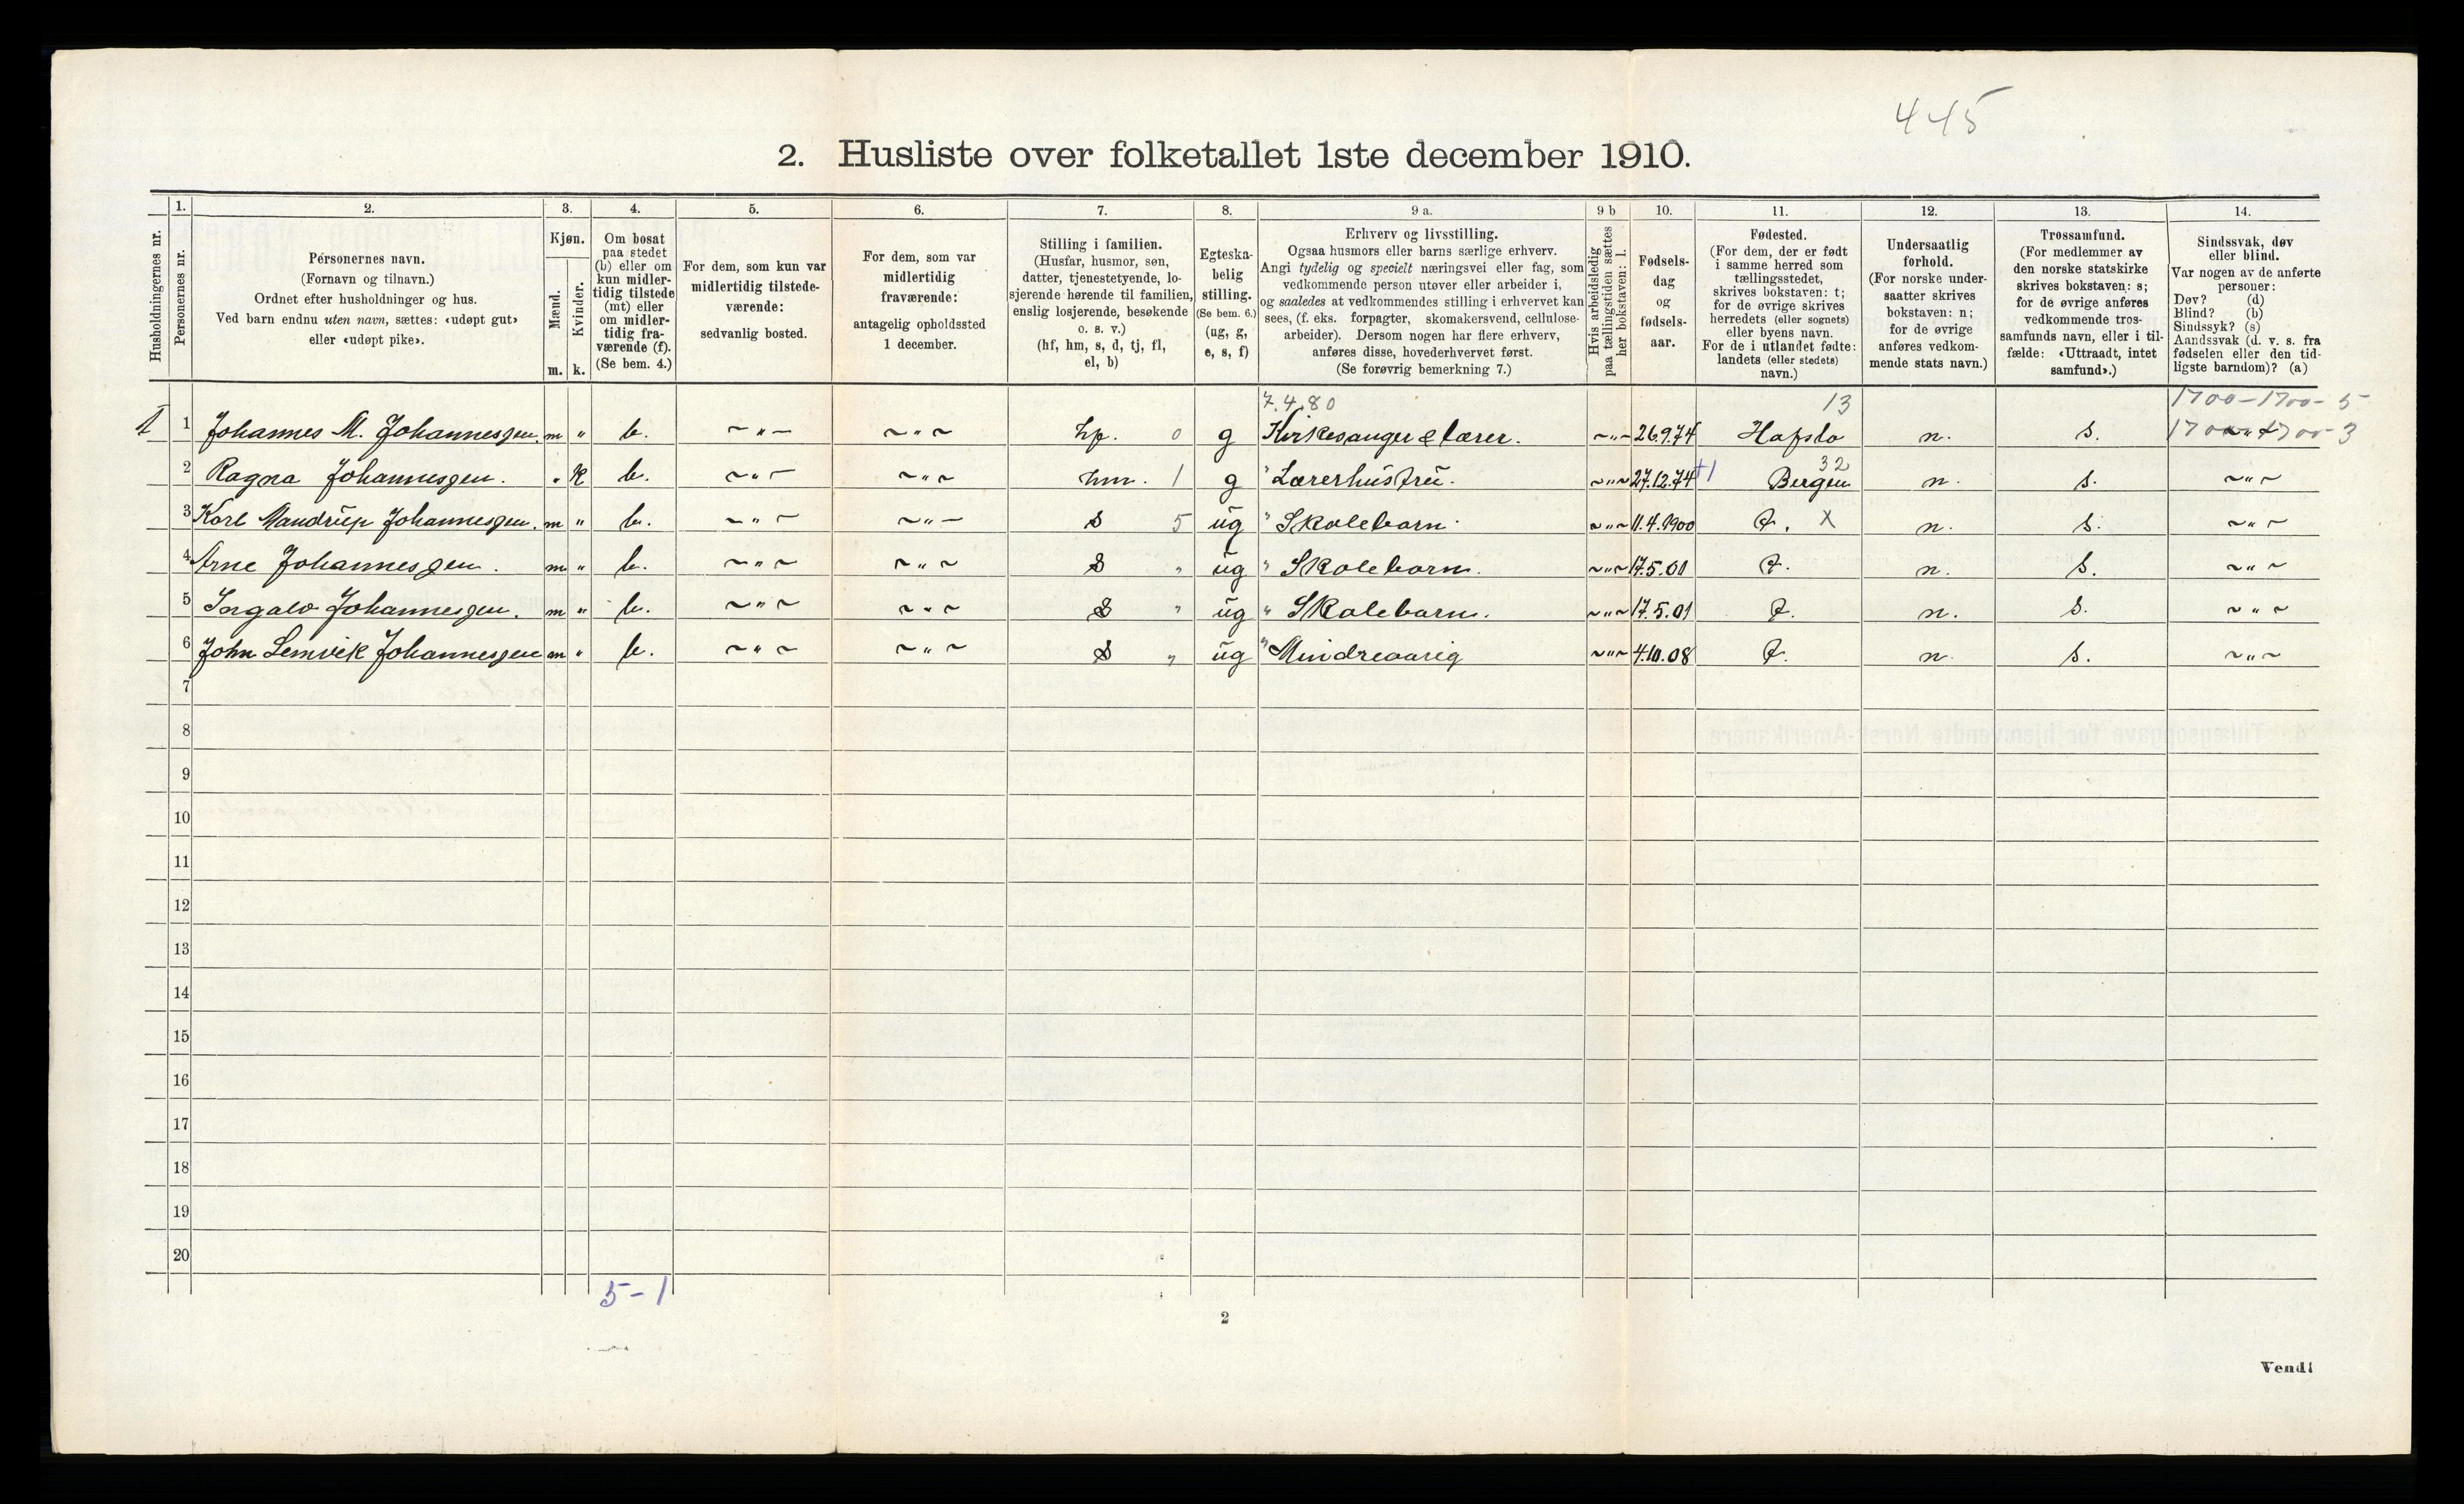 445
2. Husliste over folketallet 1ste december 1910.
Husholdningernes nr.
1.
Personernes nr.
2.
Personernes navn.
(Fornavn og tilnavn.)
Ordnet efter husholdninger og hus.
Ved barn endnu uten navn, sættes: «udøpt gut»
eller «udøpt pike».
3.
Kjøn.
Mænd.
Kvinder.
m. k.
4.
Om bosat
paa stedet
(b) eller om
kun midler-
tidig tilstede
(mt) eller
om midler-
tidig fra-
værende (f).
(Se bem. 4.)
5.
For dem, som kun var
midlertidig tilstede-
værende:
sedvanlig bosted.
6.
For dem, som var
midlertidig
fraværende:
antagelig opholdssted
1 december.
7.
Stilling i familien.
(Husfar, husmor, søn,
datter, tjenestetyende, lo-
sjerende hørende til familien,
enslig losjerende, besøkende
o. s. v.)
(hf, hm, s, d, tj, fl,
el, b)
8.
Egteska-
belig
stilling.
(Se bem. 6.)
(ug, g,
e, s, f)
9 a.
Erhverv og livsstilling.
Ogsaa husmors eller barns særlige erhverv.
Angi tydelig og specielt næringsvei eller fag, som
vedkommende person utøver eller arbeider i,
og saaledes at vedkommendes stilling i erhvervet kan
sees, (f. eks. forpagter, skomakersvend, cellulose-
arbeider). Dersom nogen har flere erhverv,
anføres disse, hovederhvervet først.
(Se forøvrig bemerkning 7.)
9 b
Hvis arbeidsledig
paa tællingstiden sættes
her bokstaven: l.
10.
Fødsels-
dag
og
fødsels-
aar.
11.
Fødested.
(For dem, der er født
i samme herred som
tællingsstedet,
skrives bokstaven: t;
for de øvrige skrives
herredets (eller sognets)
eller byens navn.
For de i utlandet fødte:
landets (eller stedets)
navn.)
12.
Undersaatlig
forhold.
(For norske under-
saatter skrives
bokstaven: n;
for de øvrige
anføres vedkom-
mende stats navn.)
13.
Trossamfund.
(For medlemmer av
den norske statskirke
skrives bokstaven: s;
for de øvrige anføres
vedkommende tros-
samfunds navn, eller i til-
fælde: «Uttraadt, intet
samfund».)
14.
Sindssvak, døv
eller blind.
Var nogen av de anførte
personer:
Døv? (d)
Blind? (b)
Sindssyk? (s)
Aandssvak (d. v. s. fra
fødselen eller den tid-
ligste barndom)? (a)
7.4.80 13 1700-1700-5
1 1 Johannes M. Johannesgen. m " b. ~"~ ~"~ hf. 0 g Kirkesanger & lærer. ~"~ 26.9.74 Hafslo n. s. 1700-1700-3
2 Ragna Johannesgen. " k b. ~"~ ~"~ hm. 1 g " Lærerhustru. ~"~ 27.12.74 +1 Bergen 32 n. s. ~"~
3 Karl Mandrup Johannesgen. m " b. ~"~ ~"~ s 5 ug " Skolebarn. ~"~ 11.4.1900 t. X n. s. ~"~
4 Arne Johannesgen. m " b. ~"~ ~"~ s " ug " Skolebarn. ~"~ 17.5.01 t. n. s. ~"~
5 Ingalv Johannesgen. m " b. ~"~ ~"~ s " ug " Skolebarn. ~"~ 17.5.01 t. n. s. ~"~
6 John Lemvik Johannesgen m " b. ~"~ ~"~ s " ug " Mindreaarig ~"~ 4.10.08 t. n. s. ~"~
7
8
9
10
11
12
13
14
15
16
17
18
19
20
5-1
2
Vend!